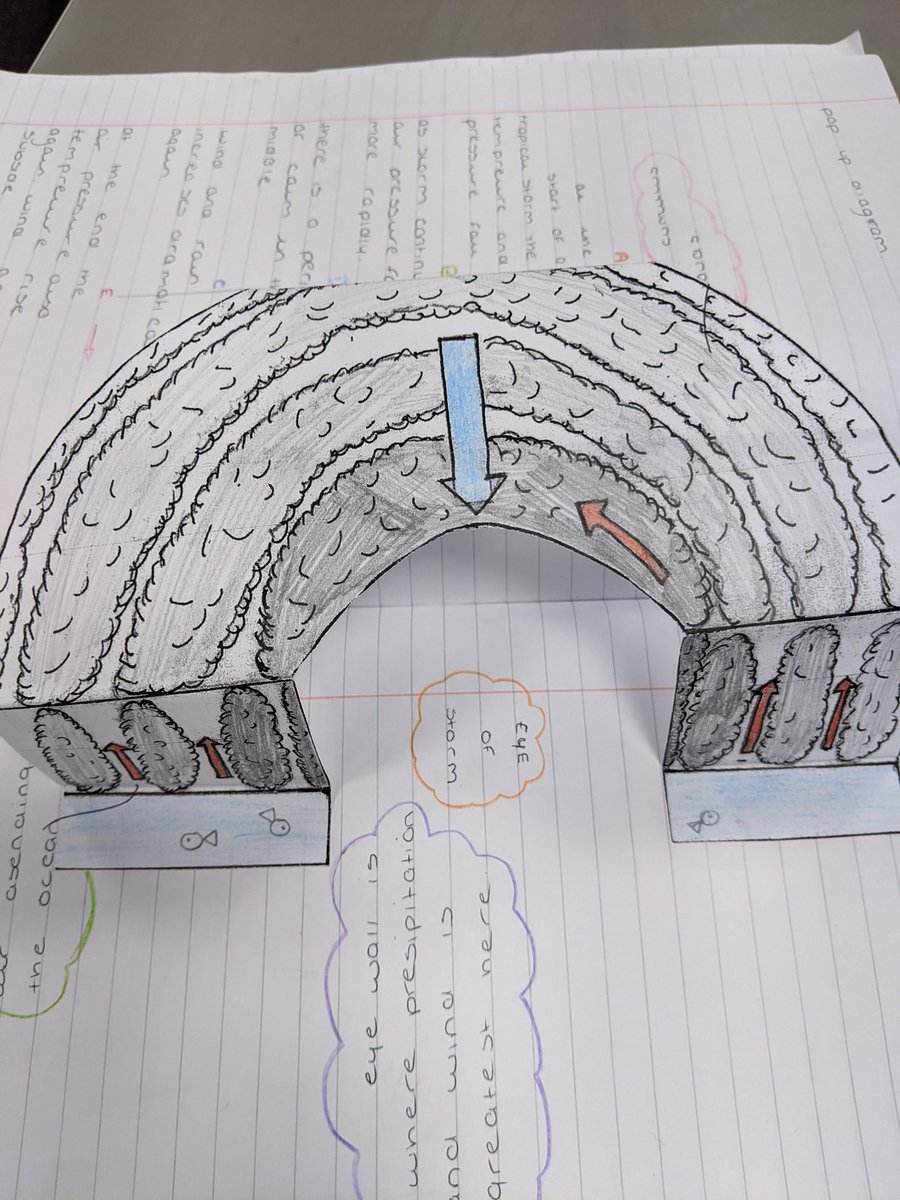 pop up diagram
A
at the
start of a
tropical storm the
tempreure and
pressure fall
B
as storm contin
air pressure f
more rapidly.
there is a peri
of calm in th
middle
C
wind and rain
increases dramatica
again
E
at the end the
air pressure and
tempreure
again wind rise
subside
Eye
of
storm
eye wall is
where presipitation
and wind is
greatest here
asending
the ocean